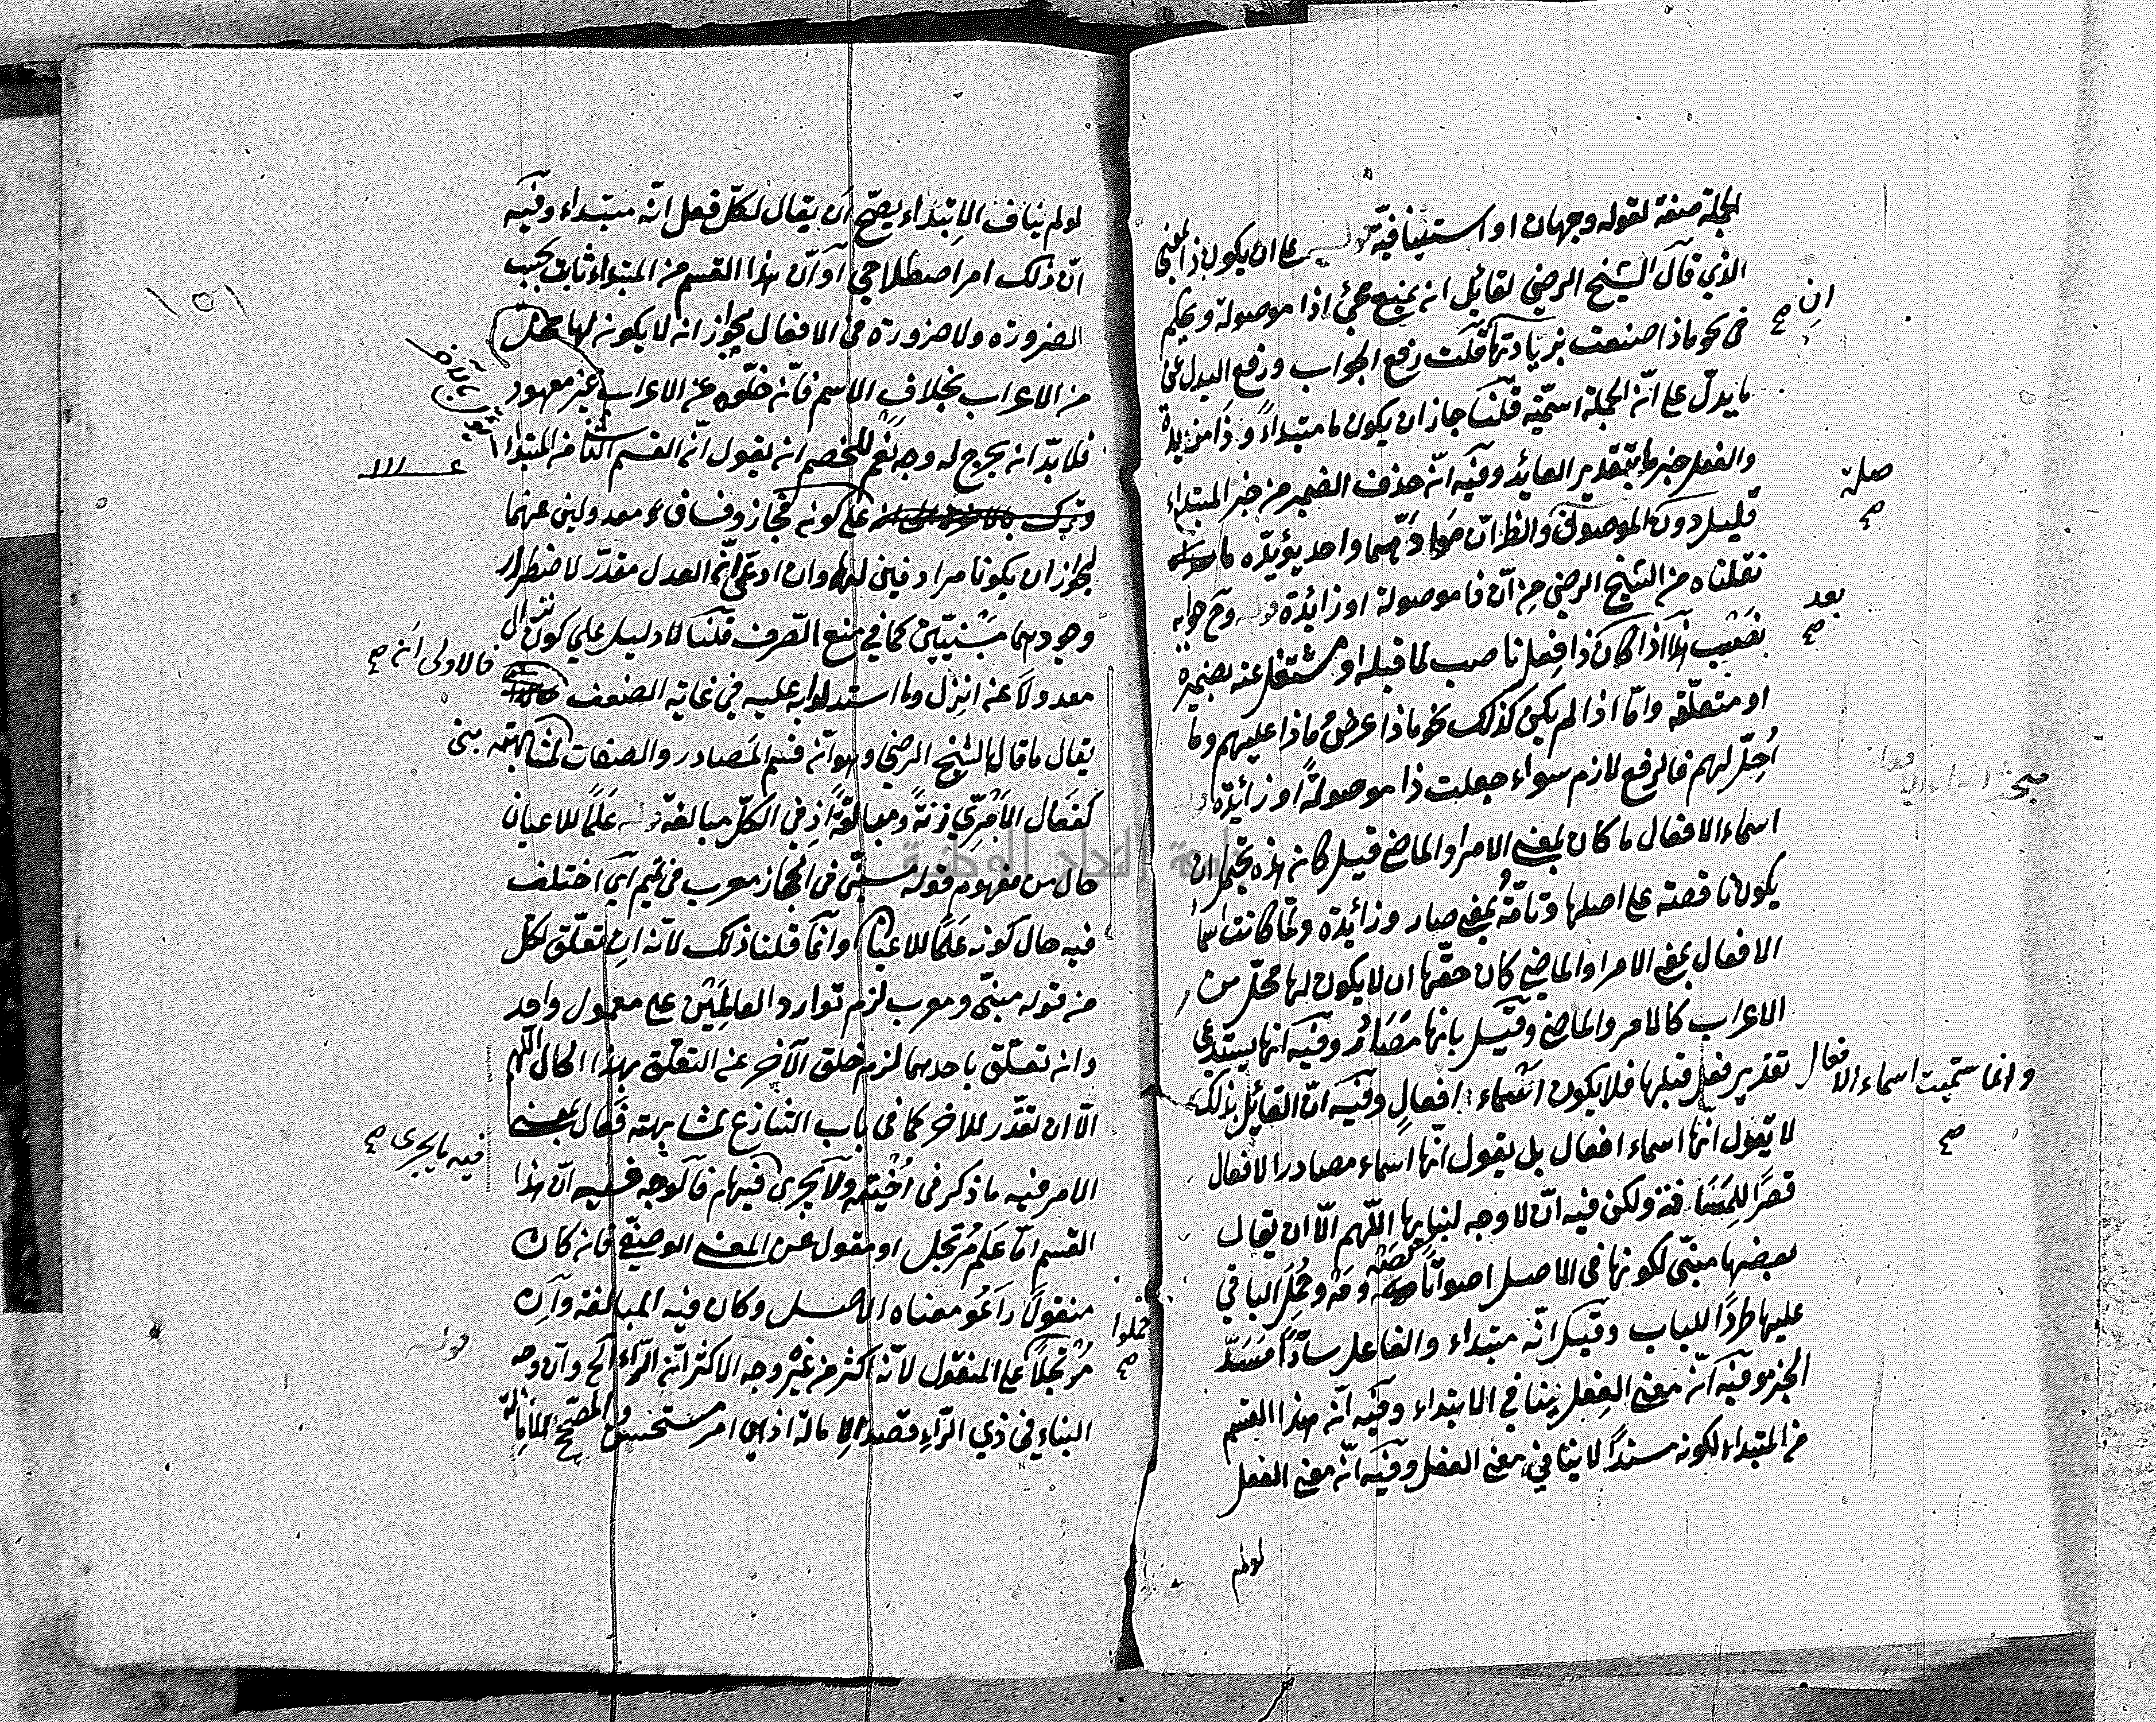 الجملة صفة لقوله وجهان او استينافية قوله على ان يكون ذا بمعنى
الذي قال الشيخ الرضي لقائل ان يمنع مجئ اذا موصولة ويحكم
في نحو ماذا صنعت بزيادتها قلت رفع الجواب ورفع البدل على
ما يدلّ على انّ الجملة اسميّة قلنا جاز ان يكون ما مبتداءً وذا مزيدة
والفعل خبر ما بتقدير العايد وفيه انّ حذف الضمير من خبر المبتداء
قليل دون الموصول والظ انّ هما واحد يؤيّده ما
نقلناه من الشيخ الرضي من انّ ذا موصولة او زائدة قوله وح جوابه
نصب هذا اذا كان ذا فعل ناصب لما قبله او مشتغل عنه بضميره
او متعلّقه وامّا اذا لم يكن كذلك نحو ماذا عرض وماذا عليهم وما
أُحِلّ لهم فالرفع لازم سواء جعلت ذا موصولةً او زائدة قوله
اسماء الافعال ما كان بمعنى الامر او الماضي قيل كان هذه يحتمل ان
يكون ناقصة على اصلها وتامّة بمعنى صار وزائدة ولمّا كانت اسماء
الافعال بمعنى الامر او الماضي كان حقّها ان لا يكون لها محلّ من
الاعراب كالامر والماضي وقيل بانها مَصَادر وفيه انها يستدعى
تقدير فعل قبلها فلا يكون اسماء افعال وفيه انّ القائل بذلك
لا يقول انّها اسماء افعال بل يقول انّها اسماء مصادر الافعال
قصرًا للمسافة ولكن فيه ان لا وجه لبنايها اللّهم الّا ان يقال
بعضها مبنّي لكونها في الاصل اصواتًا صَه ومَه وحُمِلَ الباقي
عليها طردًا للباب وقيل انّه مبتداء والفاعل سادًّا مَسَدّ
الخبر وفيه انّ معنى الفعل ينافي الابتداء وفيه انّ هذا القسم
من المبتداء لكونه مسندًا لا ينافي معنى الفعل وفيه انّ معنى الفعل
لو لم
انِ صح
صلة صح
بعد صح
مبحث اسماء الافعال
وانما سمّيت اسماء الافعال صح
لو لم يناف الابتداء يصحّ أن يقال لكلّ فعل انّه مبتداء وفيه
انّ ذلك امر اصطلاحي او انّ هذا القسم من المبتداء ثابت بحسب
الضرورة ولا ضرورة في الافعال لجواز ان لا يكون لها محل
من الاعراب بخلاف الاسم فانّ خلّوه عن الاعراب غير معهود
فلا بدّ ان يخرج له وجه نعم للخصم ان يقول انّ القسم الثاني من المبتداء
على كونه فجاز وفساق معدولين عنهما
لجواز ان يكونا مرادفين لهما وان ادعى انّ العدل مقدّر لاضطرار
وجودهما مَبْنيّين كما في منع الصّرف قلنا لا دليل على كون نزال
معدولًا عن انزل وما استدلوا به عليه في غاية الضعف
يقال ما قال الشيخ الرضي وهو انّ قسم المصادر والصفات لمشابهته بنى
كفَعال الأمْرّي زنةً ومبالغةً اذ في الكلّ مبالغة قوله عَلَمًا للاعيان
حال من مفهوم قوله مبني في الحجاز معرب في تميم اي اختلف
فيه حال كونه عَلَمًا للاعيان وانّما قلنا ذلك لانه ان تعلّق لكل
من قوله مبنّى ومعرب لزم توارد العاملَيْن على معمول واحد
وان تعلّق باحدهما لزم خلق الآخر عن التعلّق بهذا الحال اللّهم
الّا ان يقدّر للاخر كما في باب التنازع لمشابهته فعال بمعنى
الامر فيه ما ذكر في أختيه ولا يجرى فيهام فالوجه فيه انّ هذا
القسم امّا عَلَم مُرتجل او منقول عن المعنى الوصفيّ فان كان
منقولًا رَاعَو معناه الاصل وكان فيه المبالغة وان
مُرْتجلًا على المنقول لانّه اكثر من غيره وجه الاكثر انّ الرّاء الخ وان وجه
البناء في ذي الرّاءِ قصد الامالة اذ هي امر مستحسن والمصحّح للامالة
١٥١
فالاولى أن صح
فيه ما يجرى صح
حملوا صح
قوله
جامعة النجاح الوطنية